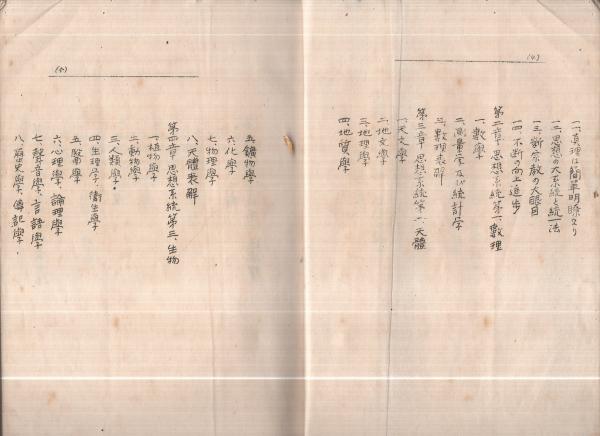 (4)
一一、真理は簡単明瞭なり
一二、思想の大系統と統一法
一三、斷宗教の大眼目
一四、不斷の向上進步
第二章 思想系統第一、數理
一、數學
二、測量学及び統計学
三、數理表解
第三章 思想系統第二、天體
一、天文學
二、地文學
三、地理學
四、地質學
(五)
五、鑛物學
六、化學
七、物理學
八、天體表解
第四章 思想系統第三、生物
一、植物學
二、動物學
三、人類學
四、生理学、衛生學
五、醫學
六、心理學、論理學
七、聲音學、言語學
八、歷史學、傳記學、